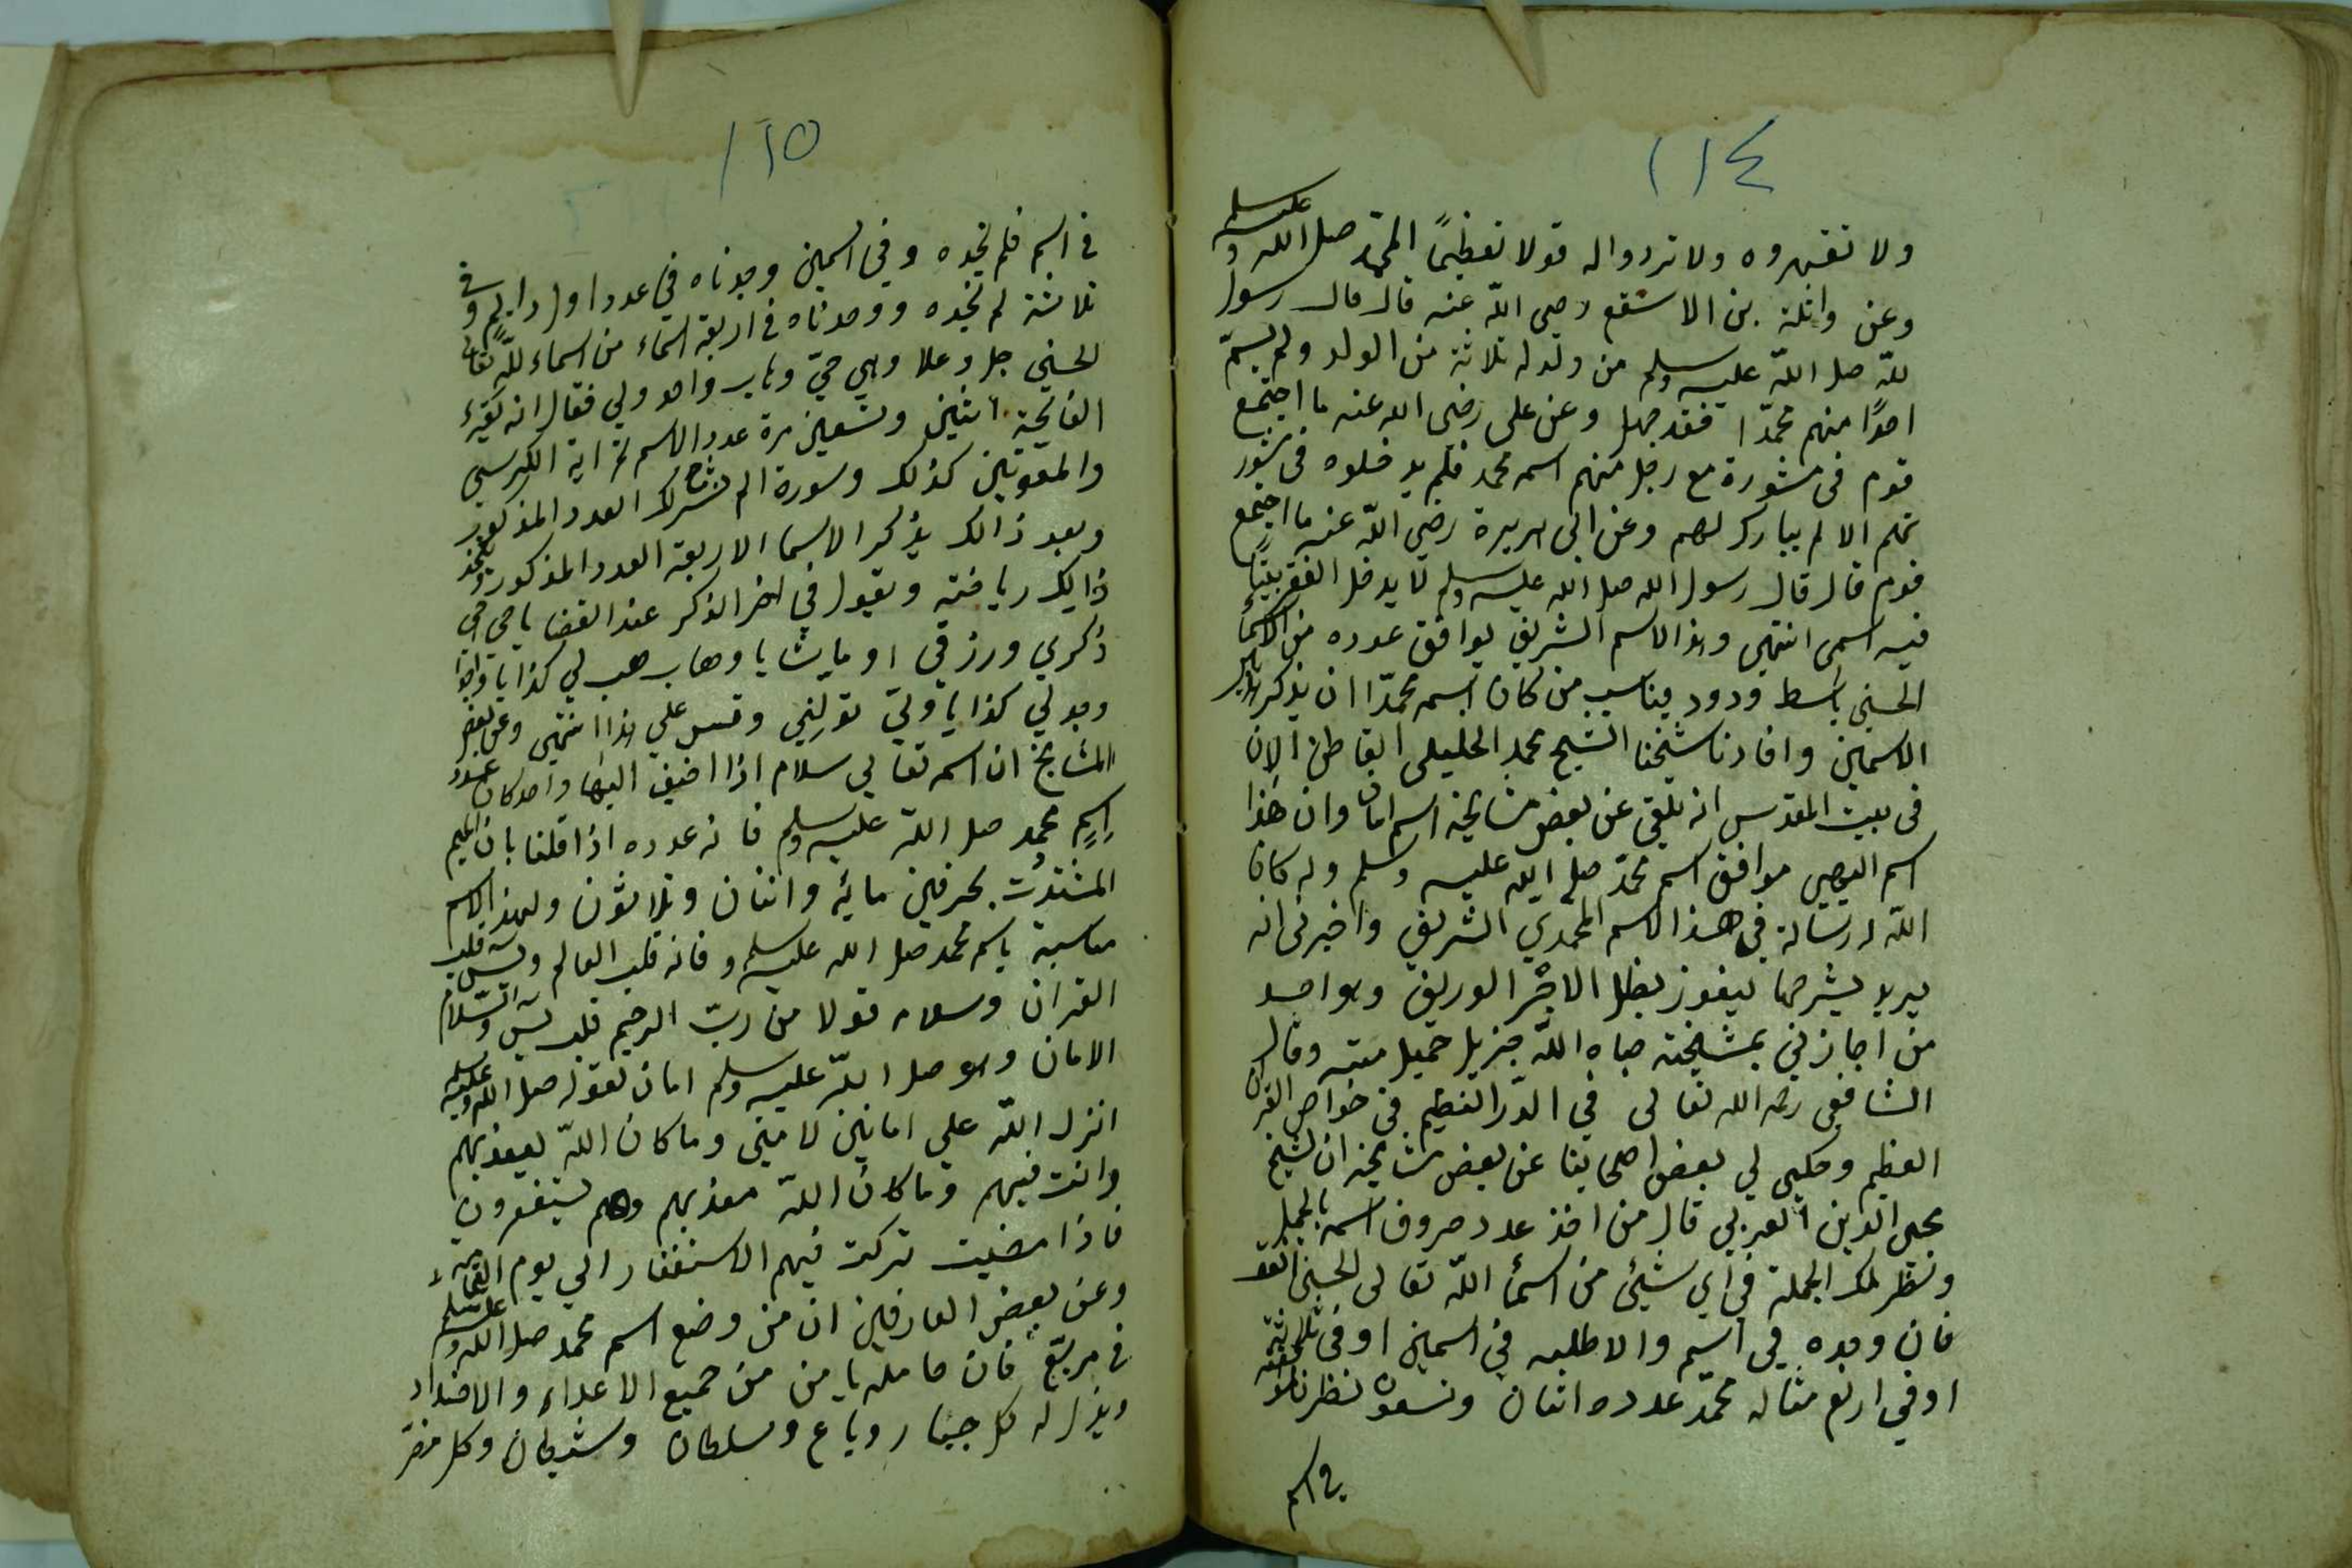 ١١٤
ولا تقبهروه ولا تردوا له قولا تعظيمًا لمحمد صلى الله عليه وسلم
وعن واثلة بن الاسقع رضي الله عنه قال قال رسول
لله صلى الله عليه وسلم من ولد له ثلاثة من الولد ولم يسمّ
احدًا منهم محمّدا فقد جهل وعن على رضى الله عنه ما اجتمع
قوم فى مشورة مع رجل منهم اسمه محمد فلم يدخلوه فى مشور
تهم الا لم يبارك لهم وعن ابى هريرة رضي الله عنه ما اجتمع
قوم قال قال رسول الله صلى الله عليه وسلم لا يدخل الفقر بيتًا
فيه اسمى انتهى وهذا الاسم الشريف يوافق عدده من الاسمأ
الحسنى باسط ودود يناسب من كان اسمه محمّدا ان يذكر هذين
الاسمين وافادنا شيخنا الشيخ محمد الخليلى القاطن الان
فى بيت المقدس انه تلقى عن بعض مشايخه اسم امان وان هذا
اسم الهي موافق اسم محمّد صلى الله عليه وسلم وله كان
الله له رسالة في هذا الاسم المحمدي الشريف واخبرنى انه
يريد يشرحها ليفوز بظل الاجر الوريف وهو احد
من اجازني بمشيخته حباه الله جزيل جميل منته وقال
الشافعى رحمه الله تعالى في الدّر النظيم فى خواص القرآن
العظيم وحكي لي بعض اصحابنا عن بعض مشايخه ان لشيخ
محى الدين العربي قال من اخذ عدد حروف اسمه بالجمل
ونظر تلك الجملة في اي شيئ من اسمأ الله تعالى الحسنى
فان وجده في اسم والا طلبه في اسمين او فى ثلاثة
او في اربع مثاله محمّد عدده اثنان وتسعون نظرناه
في اسم
١١٥
في اسم فلم نجده وفي اسمين وجدناه في عدد اول دايم وفي
ثلاثة لم نجده ووجدناه في اربعة اسماء من اسماء لله تعالى
لحسنى جل وعلا وهي حيّ وهاب واحد ولي فقال انه يقرء
الفاتحة اثنين وتسعين مرة عدد الاسم ثم اية الكرسي
والمعوّتين كذلك وسورة الم نشرح لك العدد المذكور
وبعد ذالك يذكر الاسما الاربعة العدد المذكور ويتخذ
ذالك رياضته ويقول في اخر الذكر عند القضا يا حي احي
ذكري ورزقي او ما يشا يا وهاب هب لي كذا يا واجد
وجد لي كذا يا وليّ تولني وقس علي هذا انتهى وعن بعض
المشايخ ان اسمه تعالي سلام اذا اضيف اليها واحد كان عدد
اسم محمد صلى الله عليه وسلم فانه عدده اذا قلنا بان الميم
المشتدّت بحرفين مائة واثنان وثلاثون ولهذا الاسم
مناسبة باسم محمد صلى الله عليه وسلم فانه قلب العالم ويسٓ قلب
القران وسلام قولا من ربّ الرحيم قلب يسٓ والسّلام
الامان وهو صلى الله عليه وسلم امان لقوله صلى الله عليه وسلم
انزل الله علي امانين لامتى وما كان الله ليعذبهم
وانت فيهم وما كان الله معذبهم وهم يستغفرون
فاذا مضيت تركت فيهم الاستغفار الي يوم القيامة
وعن بعض العارفين ان من وضع اسم محمد صلى الله عليه وسلم
في مربّع فان حامله يامن من جميع الاعداء والاضداد
ويذل له كل جبار وباغ وسلطان وشيطان وكل مضر